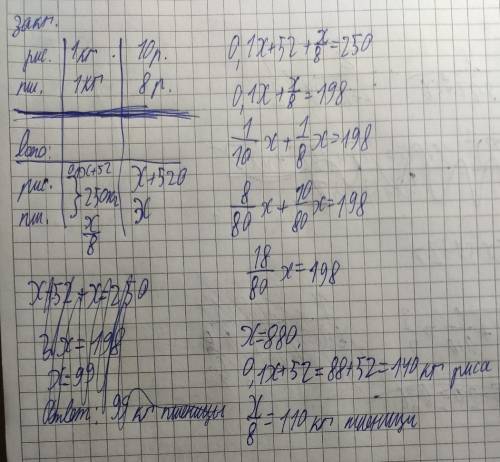 закл.
рис. 1кг 10р.
пш. 1кг 8р.
рис. 0,1x+52 x+520
} 250кг
пш. x/8 x
x+52+x=250
2x=198
x=99
Ответ: 99 кг пшеницы
0,1x+52+x/8=250
0,1x+x/8=198
1/10 x+1/8 x=198
8/80 x+10/80 x=198
18/80 x=198
x=880,
0,1x+52=88+52=140 кг риса
x/8=110 кг пшеницы